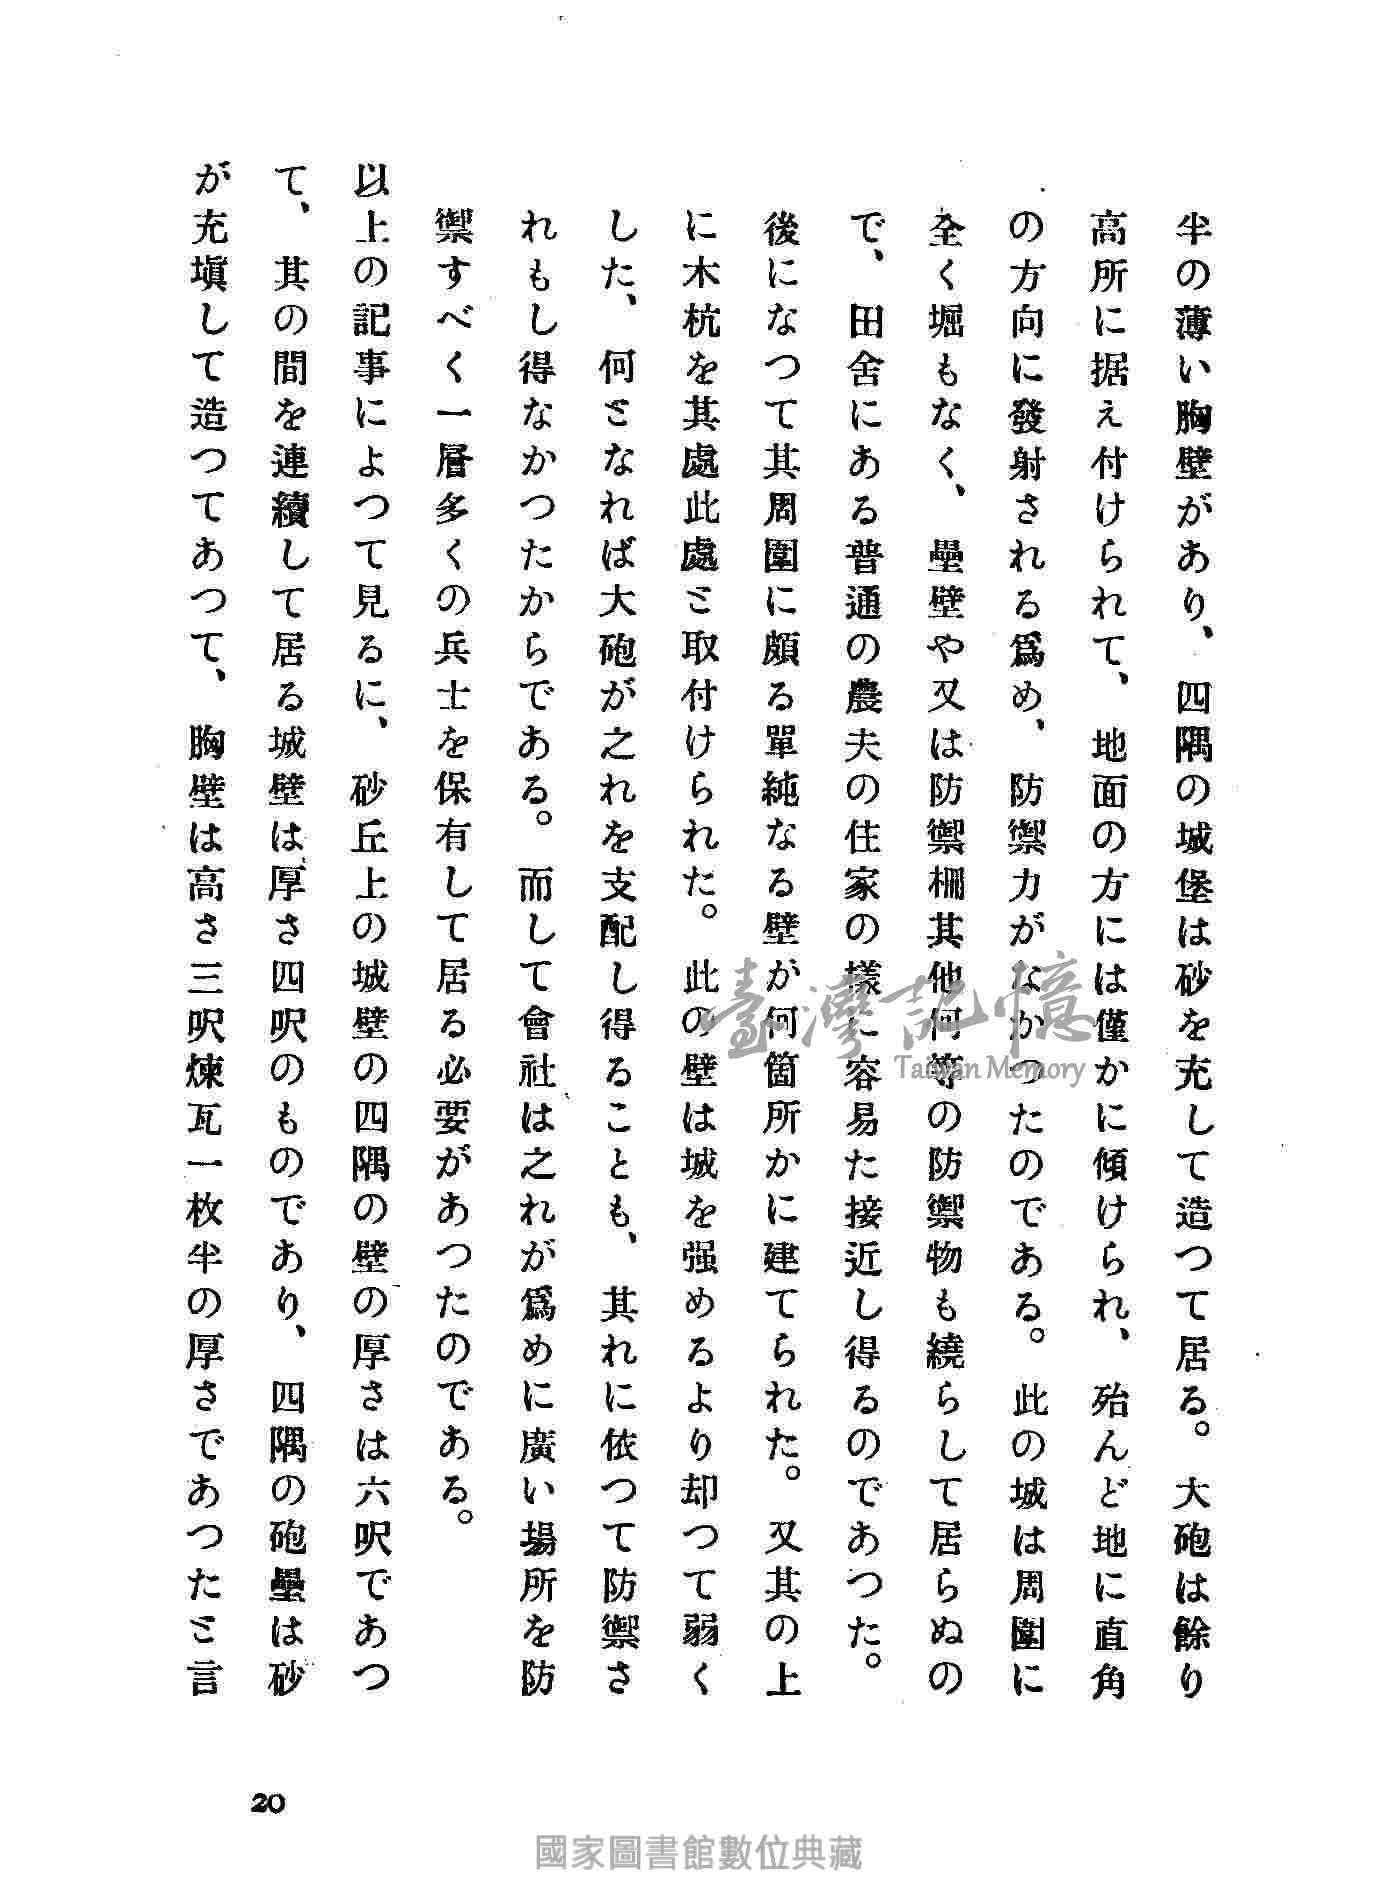 半の薄い胸壁があり、四隅の城堡は砂を充して造つて居る。大砲は餘り
高所に据ぇ付けられて、地面の方には僅かに傾けられ、殆んど地に直角
の方向に發射される爲め、防禦力がなかつたのである。此の城は周圍に
全く堀もなく、壘壁や又は防禦柵其他何等の防禦物も繞らして居らぬの
で、田舍にある普通の農夫の住家の樣に容易た接近し得るのであつた。
後になつて其周圍に頗る單純なる壁が何箇所かに建てられた。又其の上
に木杭を其處此處ミ取付けられた。此の壁は城を强めるより却つて弱く
した、何ミなれば大砲が之れを支配し得ることも、其れに依つて防禦さ
れもし得なかつたからである。而して會社は之れが爲めに廣い場所を防
禦すべく一層多くの兵士を保有して居る必要があつたのである。
以上の記事によつて見るに、砂丘上の城壁の四隅の壁の厚さは六呎であつ
て、其の間を連續して居る城壁は厚さ四呎のものであり、四隅の砲壘は砂
が充塡して造つてあつて、胸壁は高さ三呎煉瓦一枚半の厚さであつたミ言
20
臺灣記憶
Taiwan Memory
國家圖書館數位典藏